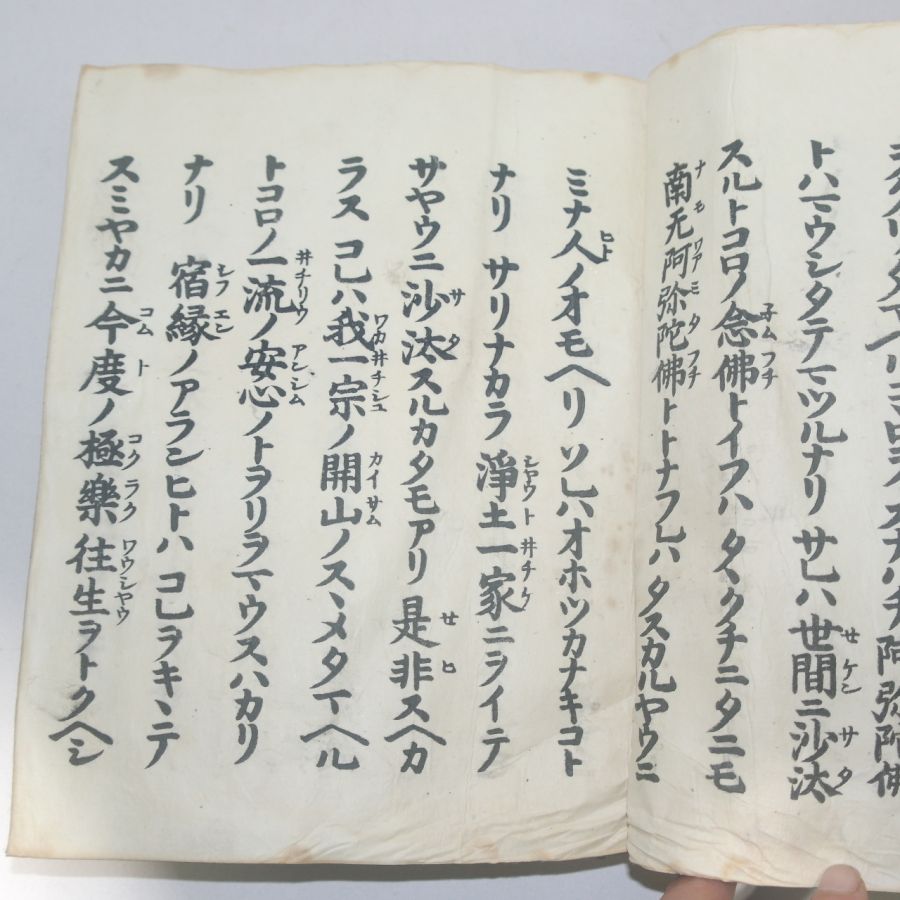 スナハチ阿弥陀佛
トハマウシタテマツルナリ サレハ世間ニ沙汰
スルトコロノ念佛トイフハ タヽクチニタニモ
南无阿弥陀佛トトナフレハ タスカルヤウニ
ミナ人ノオモヘリ ソレハオホツカナキコト
ナリ サリナカラ 淨土一家ニヲイテ
サヤウニ沙汰スルカタモアリ 是非スヘカ
ラス コレハ我一宗ノ開山ノスヽメタマヘル
トコロノ一流ノ安心ノトヲリヲマウスハカリ
ナリ 宿縁ノアランヒトハ コレヲキヽテ
スミヤカニ今度ノ極樂往生ヲトクヘシ